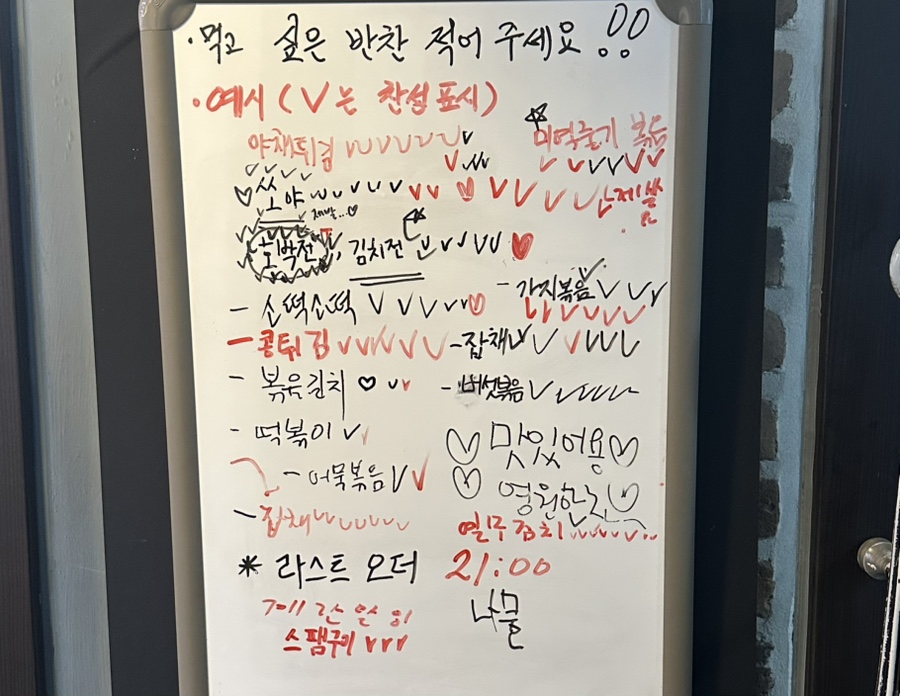 · 먹고 싶은 반찬 적어 주세요 !!
· 예시 ( V는 찬성표시)
야채튀김 VVVVVVV VVV
☆ 미역줄기 볶음 VVVVVV
♡ 쏘야 VVVVVV VV ♡ VVVV
제발...♡
호박전, 김치전 VVVVV ♥
- 소떡소떡 VVVVV♡
- 가지볶음 VVVV
- 콩튀김 VVVVVV
- 잡채 VV VVVV
- 볶음김치 ♡ VV
- 버섯볶음 VVVVVV
- 떡볶이 VV
♡ 맛있어용 ♡
- 어묵볶음 VV
♡ 영원한
- 잡채 VVVVVVV
열무김치 VVVVVV
* 라스트 오더 21:00
계란말이
나물
스팸구이 VVV